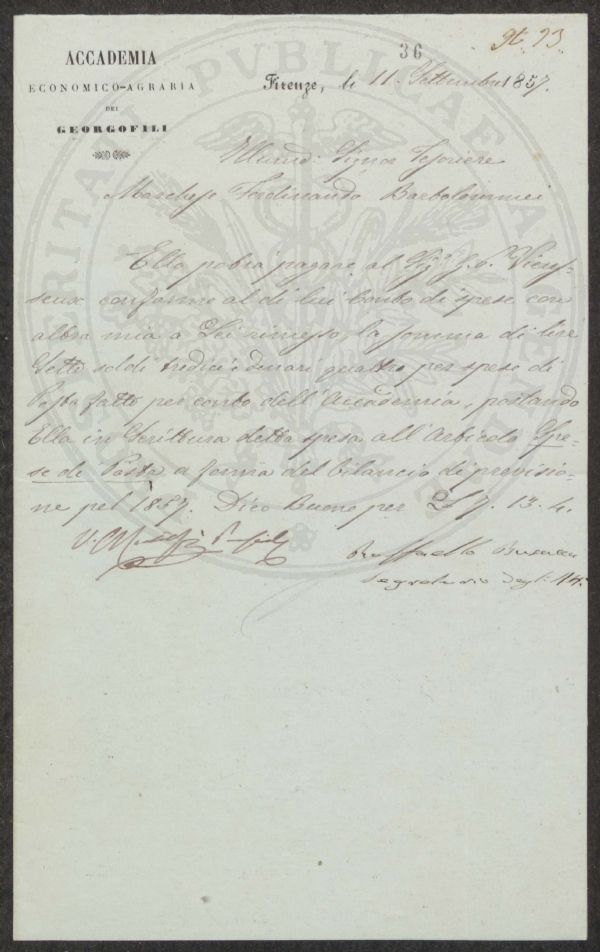 36
ACCADEMIA
ECONOMICO-AGRARIA
DEI
GEORGOFILI
Firenze, li 11. Settembre 1857.
Illmo: Signor Tesoriere
Marchese Ferdinando Bartolommei
Ella potrà pagare al Sigr. G. P. Vieus-
seux conforme al di lui conto di spese con
altra mia a Lei rimesso, la somma di lire
Sette soldi tredici e denari quattro per spese di
Posta fatte per conto dell'Accademia, portando
Ella in Scrittura detta spesa all'Articolo Spe-
se di Posta a forma del bilancio di previsio-
ne pel 1857. Dico Buono per £ 7. 13. 4.
Raffaello Busacca
Segretario degli Atti
PUBLICAE